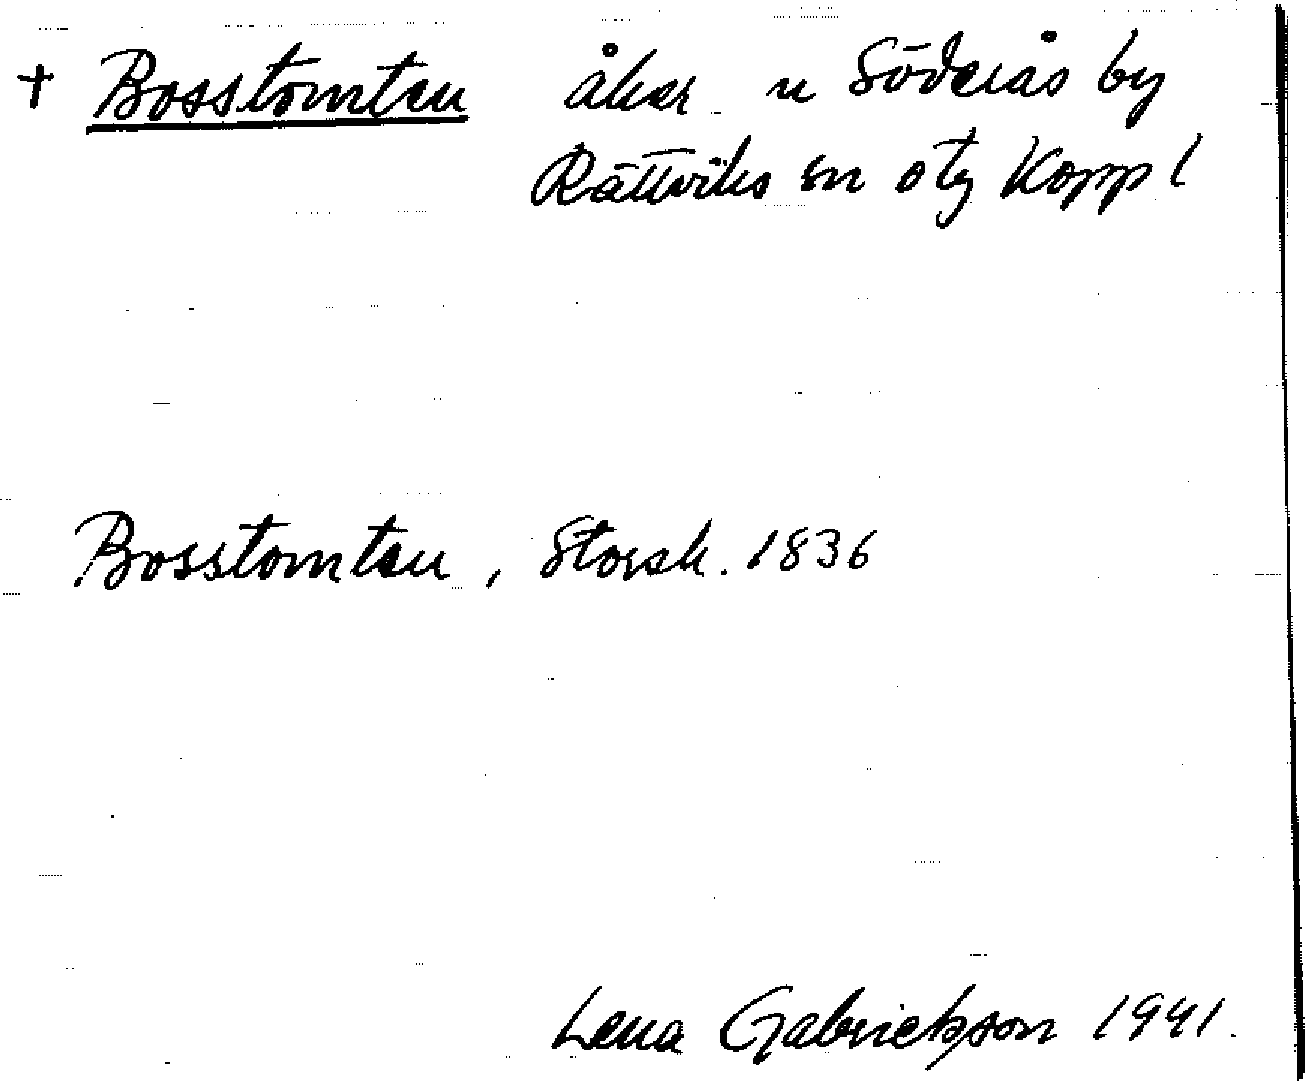 † Bosstomten åker u Söderås by
Rättviks sn o tg Kopp l
Bosstomten, Storsk. 1836
Lena Gabrielsson 1941.